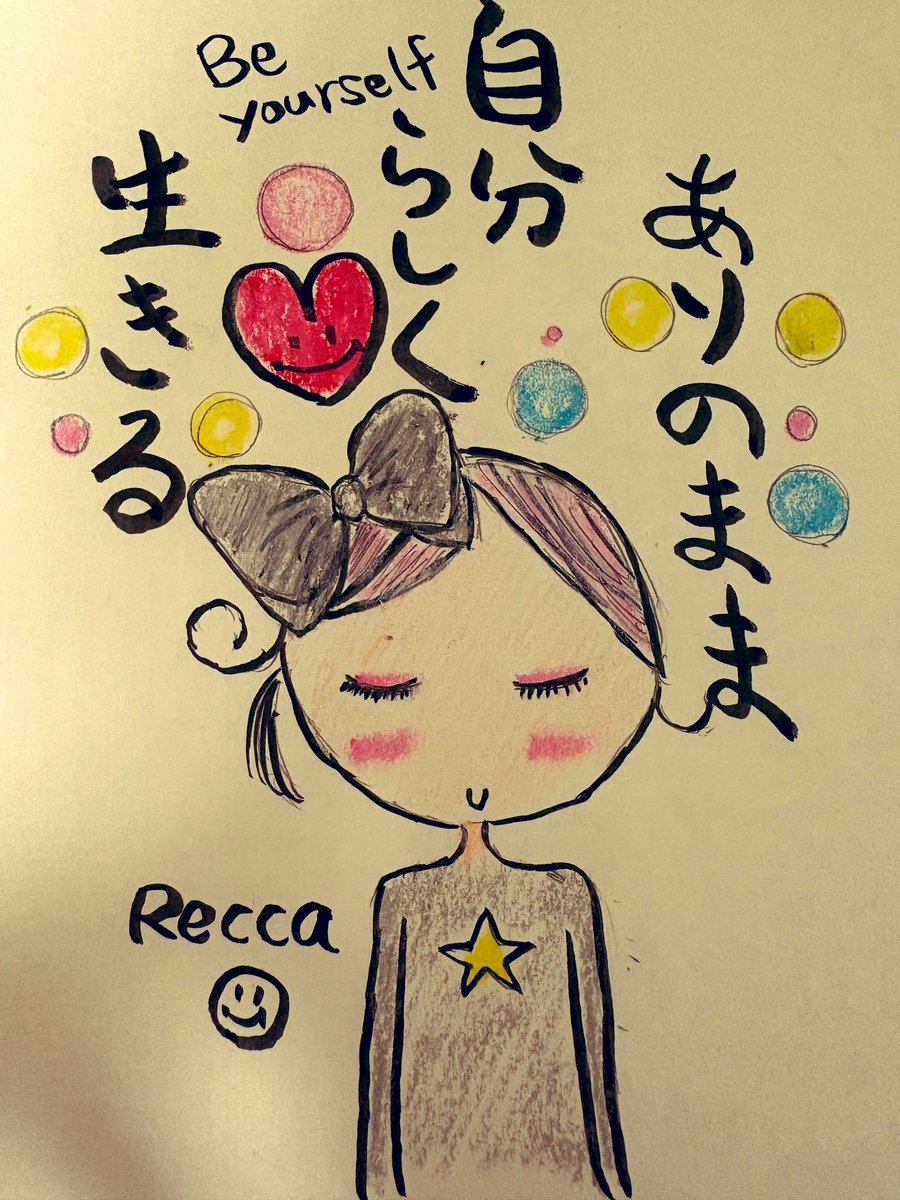 Be
yourself
ありのまま
自分
らしく
生きる
Recca